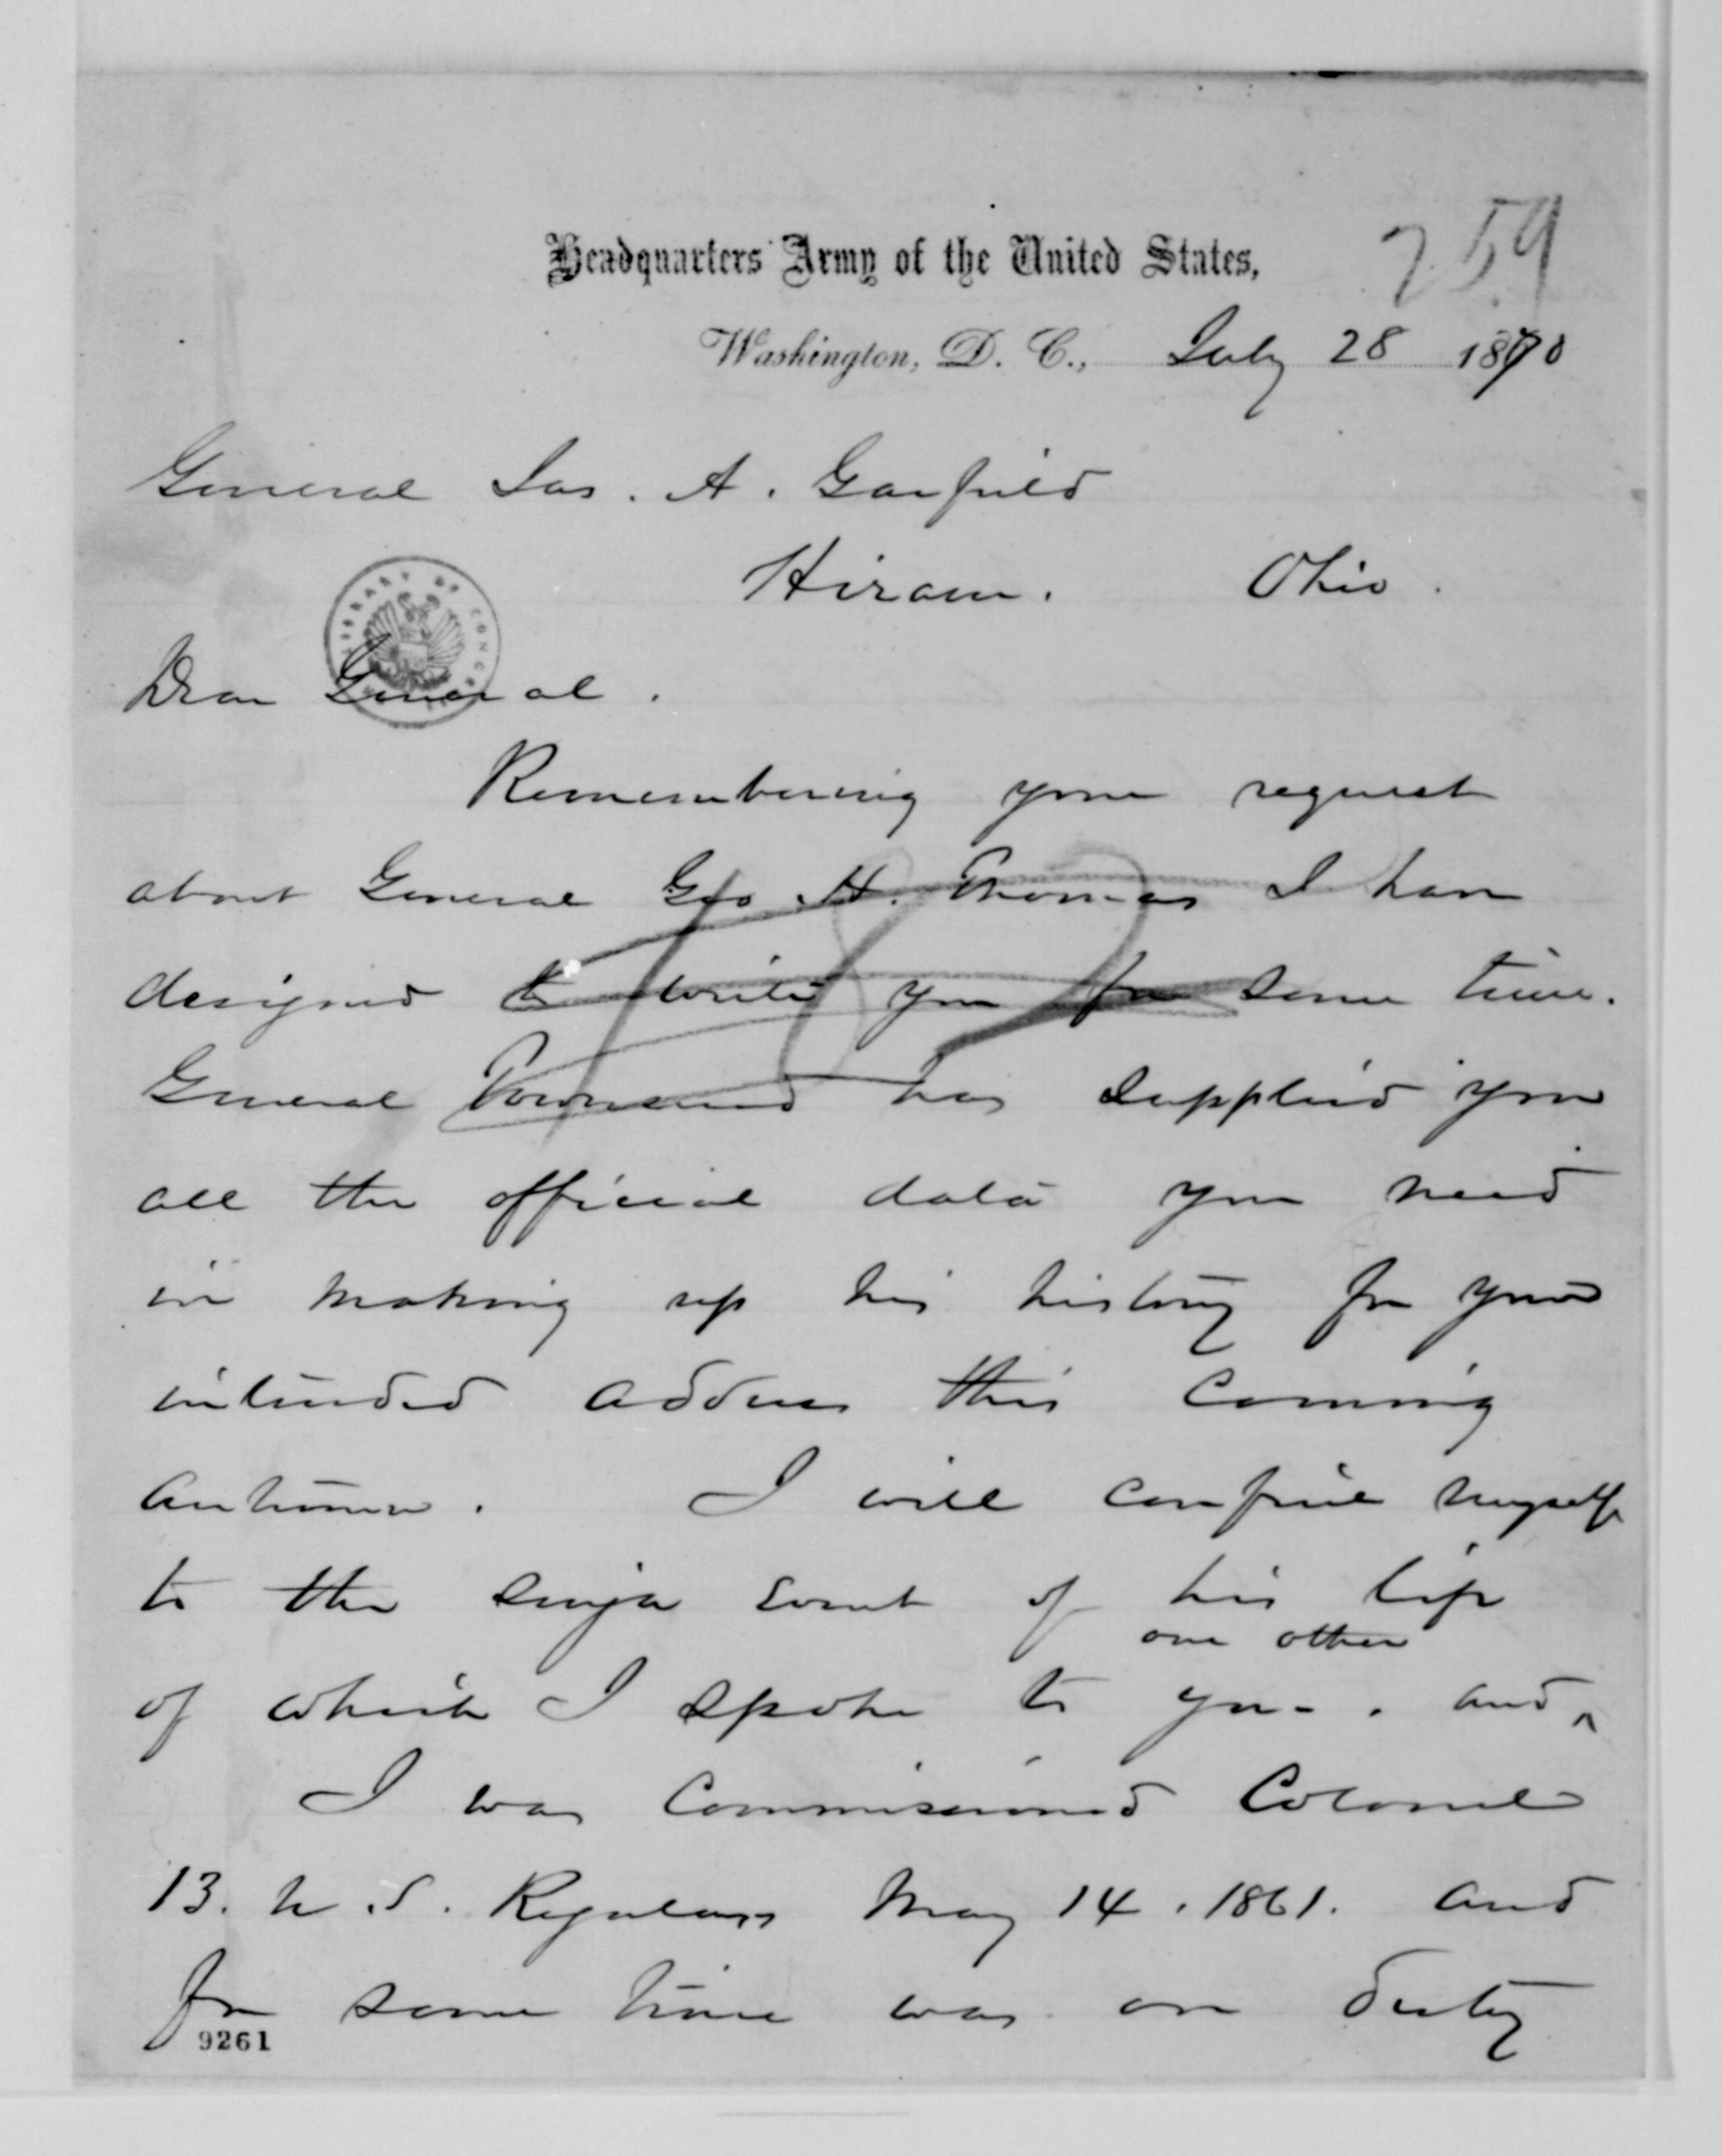 259
Headquarters Army of the United States,
Washington, D. C., July 28 1870
General Jas. A. Garfield
Hiram. Ohio.
LIBRARY OF CONGRESS
Dear General.
Remembering your request
about General Geo H. Thomas I have
designed to write you for some time.
General Townsend has supplied you
all the official data you need
in making up his history for your
intended address this coming
Autumn. I will confine myself
to the single event of his life
one other
of which I spoke to you. and ^
I was Commissioned Colonel
13. U.S. Regulars May 14. 1861. and
for some time was on duty
9261